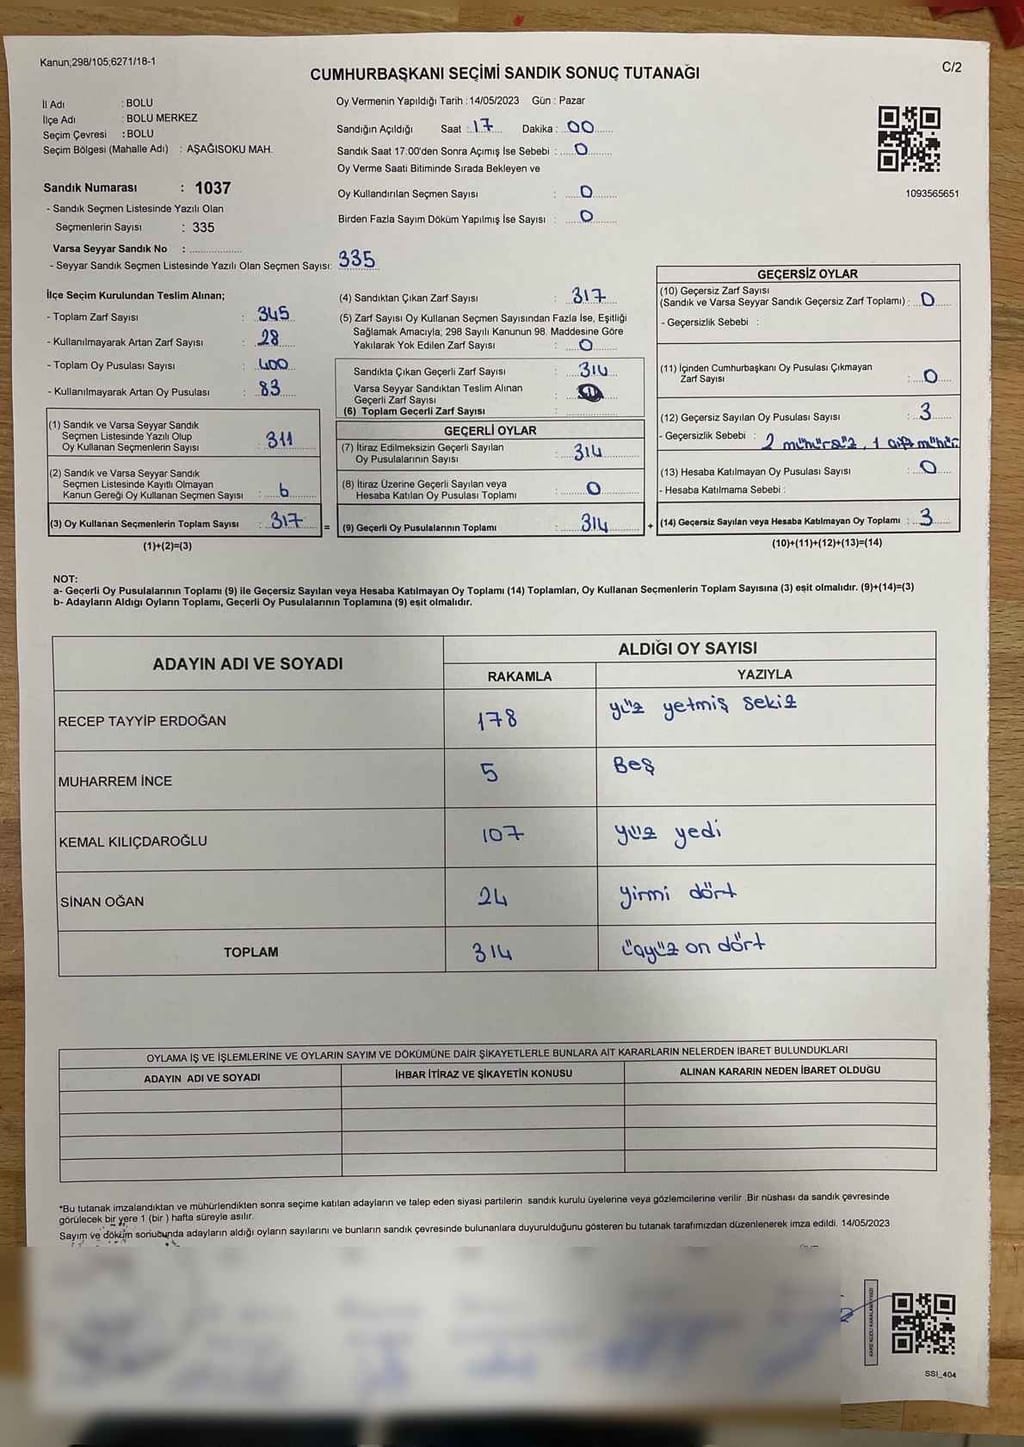 Kanun;298/105;6271/18-1
C/2
CUMHURBAŞKANI SEÇİMİ SANDIK SONUÇ TUTANAĞI
İl Adı : BOLU
İlçe Adı : BOLU MERKEZ
Seçim Çevresi : BOLU
Seçim Bölgesi (Mahalle Adı) : AŞAĞISOKU MAH.
Sandık Numarası : 1037
- Sandık Seçmen Listesinde Yazılı Olan
Seçmenlerin Sayısı : 335
Varsa Seyyar Sandık No :
- Seyyar Sandık Seçmen Listesinde Yazılı Olan Seçmen Sayısı: 335
Oy Vermenin Yapıldığı Tarih : 14/05/2023 Gün : Pazar
Sandığın Açıldığı Saat : 17 Dakika : 00
Sandık Saat 17:00'den Sonra Açımış İse Sebebi : 0
Oy Verme Saati Bitiminde Sırada Bekleyen ve
Oy Kullandırılan Seçmen Sayısı : 0
Birden Fazla Sayım Döküm Yapılmış İse Sayısı : 0
1093565651
İlçe Seçim Kurulundan Teslim Alınan;
- Toplam Zarf Sayısı : 345
- Kullanılmayarak Artan Zarf Sayısı : 28
- Toplam Oy Pusulası Sayısı : 400
- Kullanılmayarak Artan Oy Pusulası : 83
(1) Sandık ve Varsa Seyyar Sandık
Seçmen Listesinde Yazılı Olup
Oy Kullanan Seçmenlerin Sayısı : 311
(2) Sandık ve Varsa Seyyar Sandık
Seçmen Listesinde Kayıtlı Olmayan
Kanun Gereği Oy Kullanan Seçmen Sayısı : 6
(3) Oy Kullanan Seçmenlerin Toplam Sayısı : 317
(1)+(2)=(3)
(4) Sandıktan Çıkan Zarf Sayısı : 317
(5) Zarf Sayısı Oy Kullanan Seçmen Sayısından Fazla İse, Eşitliği
Sağlamak Amacıyla, 298 Sayılı Kanunun 98. Maddesine Göre
Yakılarak Yok Edilen Zarf Sayısı : 0
Sandıkta Çıkan Geçerli Zarf Sayısı : 314
Varsa Seyyar Sandıktan Teslim Alınan
Geçerli Zarf Sayısı :
(6) Toplam Geçerli Zarf Sayısı :
GEÇERLİ OYLAR
(7) İtiraz Edilmeksizin Geçerli Sayılan
Oy Pusulalarının Sayısı : 314
(8) İtiraz Üzerine Geçerli Sayılan veya
Hesaba Katılan Oy Pusulası Toplamı : 0
= (9) Geçerli Oy Pusulalarının Toplamı : 314 +
GEÇERSİZ OYLAR
(10) Geçersiz Zarf Sayısı
(Sandık ve Varsa Seyyar Sandık Geçersiz Zarf Toplamı) : 0
- Geçersizlik Sebebi :
(11) İçinden Cumhurbaşkanı Oy Pusulası Çıkmayan
Zarf Sayısı : 0
(12) Geçersiz Sayılan Oy Pusulası Sayısı : 3
- Geçersizlik Sebebi : 2 mühürsüz, 1 çift mühür
(13) Hesaba Katılmayan Oy Pusulası Sayısı : 0
- Hesaba Katılmama Sebebi :
(14) Geçersiz Sayılan veya Hesaba Katılmayan Oy Toplamı : 3
(10)+(11)+(12)+(13)=(14)
NOT:
a- Geçerli Oy Pusulalarının Toplamı (9) ile Geçersiz Sayılan veya Hesaba Katılmayan Oy Toplamı (14) Toplamları, Oy Kullanan Seçmenlerin Toplam Sayısına (3) eşit olmalıdır. (9)+(14)=(3)
b- Adayların Aldığı Oyların Toplamı, Geçerli Oy Pusulalarının Toplamına (9) eşit olmalıdır.
ADAYIN ADI VE SOYADI ALDIĞI OY SAYISI
RAKAMLA YAZIYLA
RECEP TAYYİP ERDOĞAN 178 yüz yetmiş sekiz
MUHARREM İNCE 5 Beş
KEMAL KILIÇDAROĞLU 107 yüz yedi
SİNAN OĞAN 24 yirmi dört
TOPLAM 314 üçyüz on dört
OYLAMA İŞ VE İŞLEMLERİNE VE OYLARIN SAYIM VE DÖKÜMÜNE DAİR ŞİKAYETLERLE BUNLARA AİT KARARLARIN NELERDEN İBARET BULUNDUKLARI
ADAYIN ADI VE SOYADI İHBAR İTİRAZ VE ŞİKAYETİN KONUSU ALINAN KARARIN NEDEN İBARET OLDUĞU
*Bu tutanak imzalandıktan ve mühürlendikten sonra seçime katılan adayların ve talep eden siyasi partilerin sandık kurulu üyelerine veya gözlemcilerine verilir .Bir nüshası da sandık çevresinde
görülecek bir yere 1 (bir ) hafta süreyle asılır.
Sayım ve döküm sonucunda adayların aldığı oyların sayılarını ve bunların sandık çevresinde bulunanlara duyurulduğunu gösteren bu tutanak tarafımızdan düzenlenerek imza edildi. 14/05/2023
SSI_404